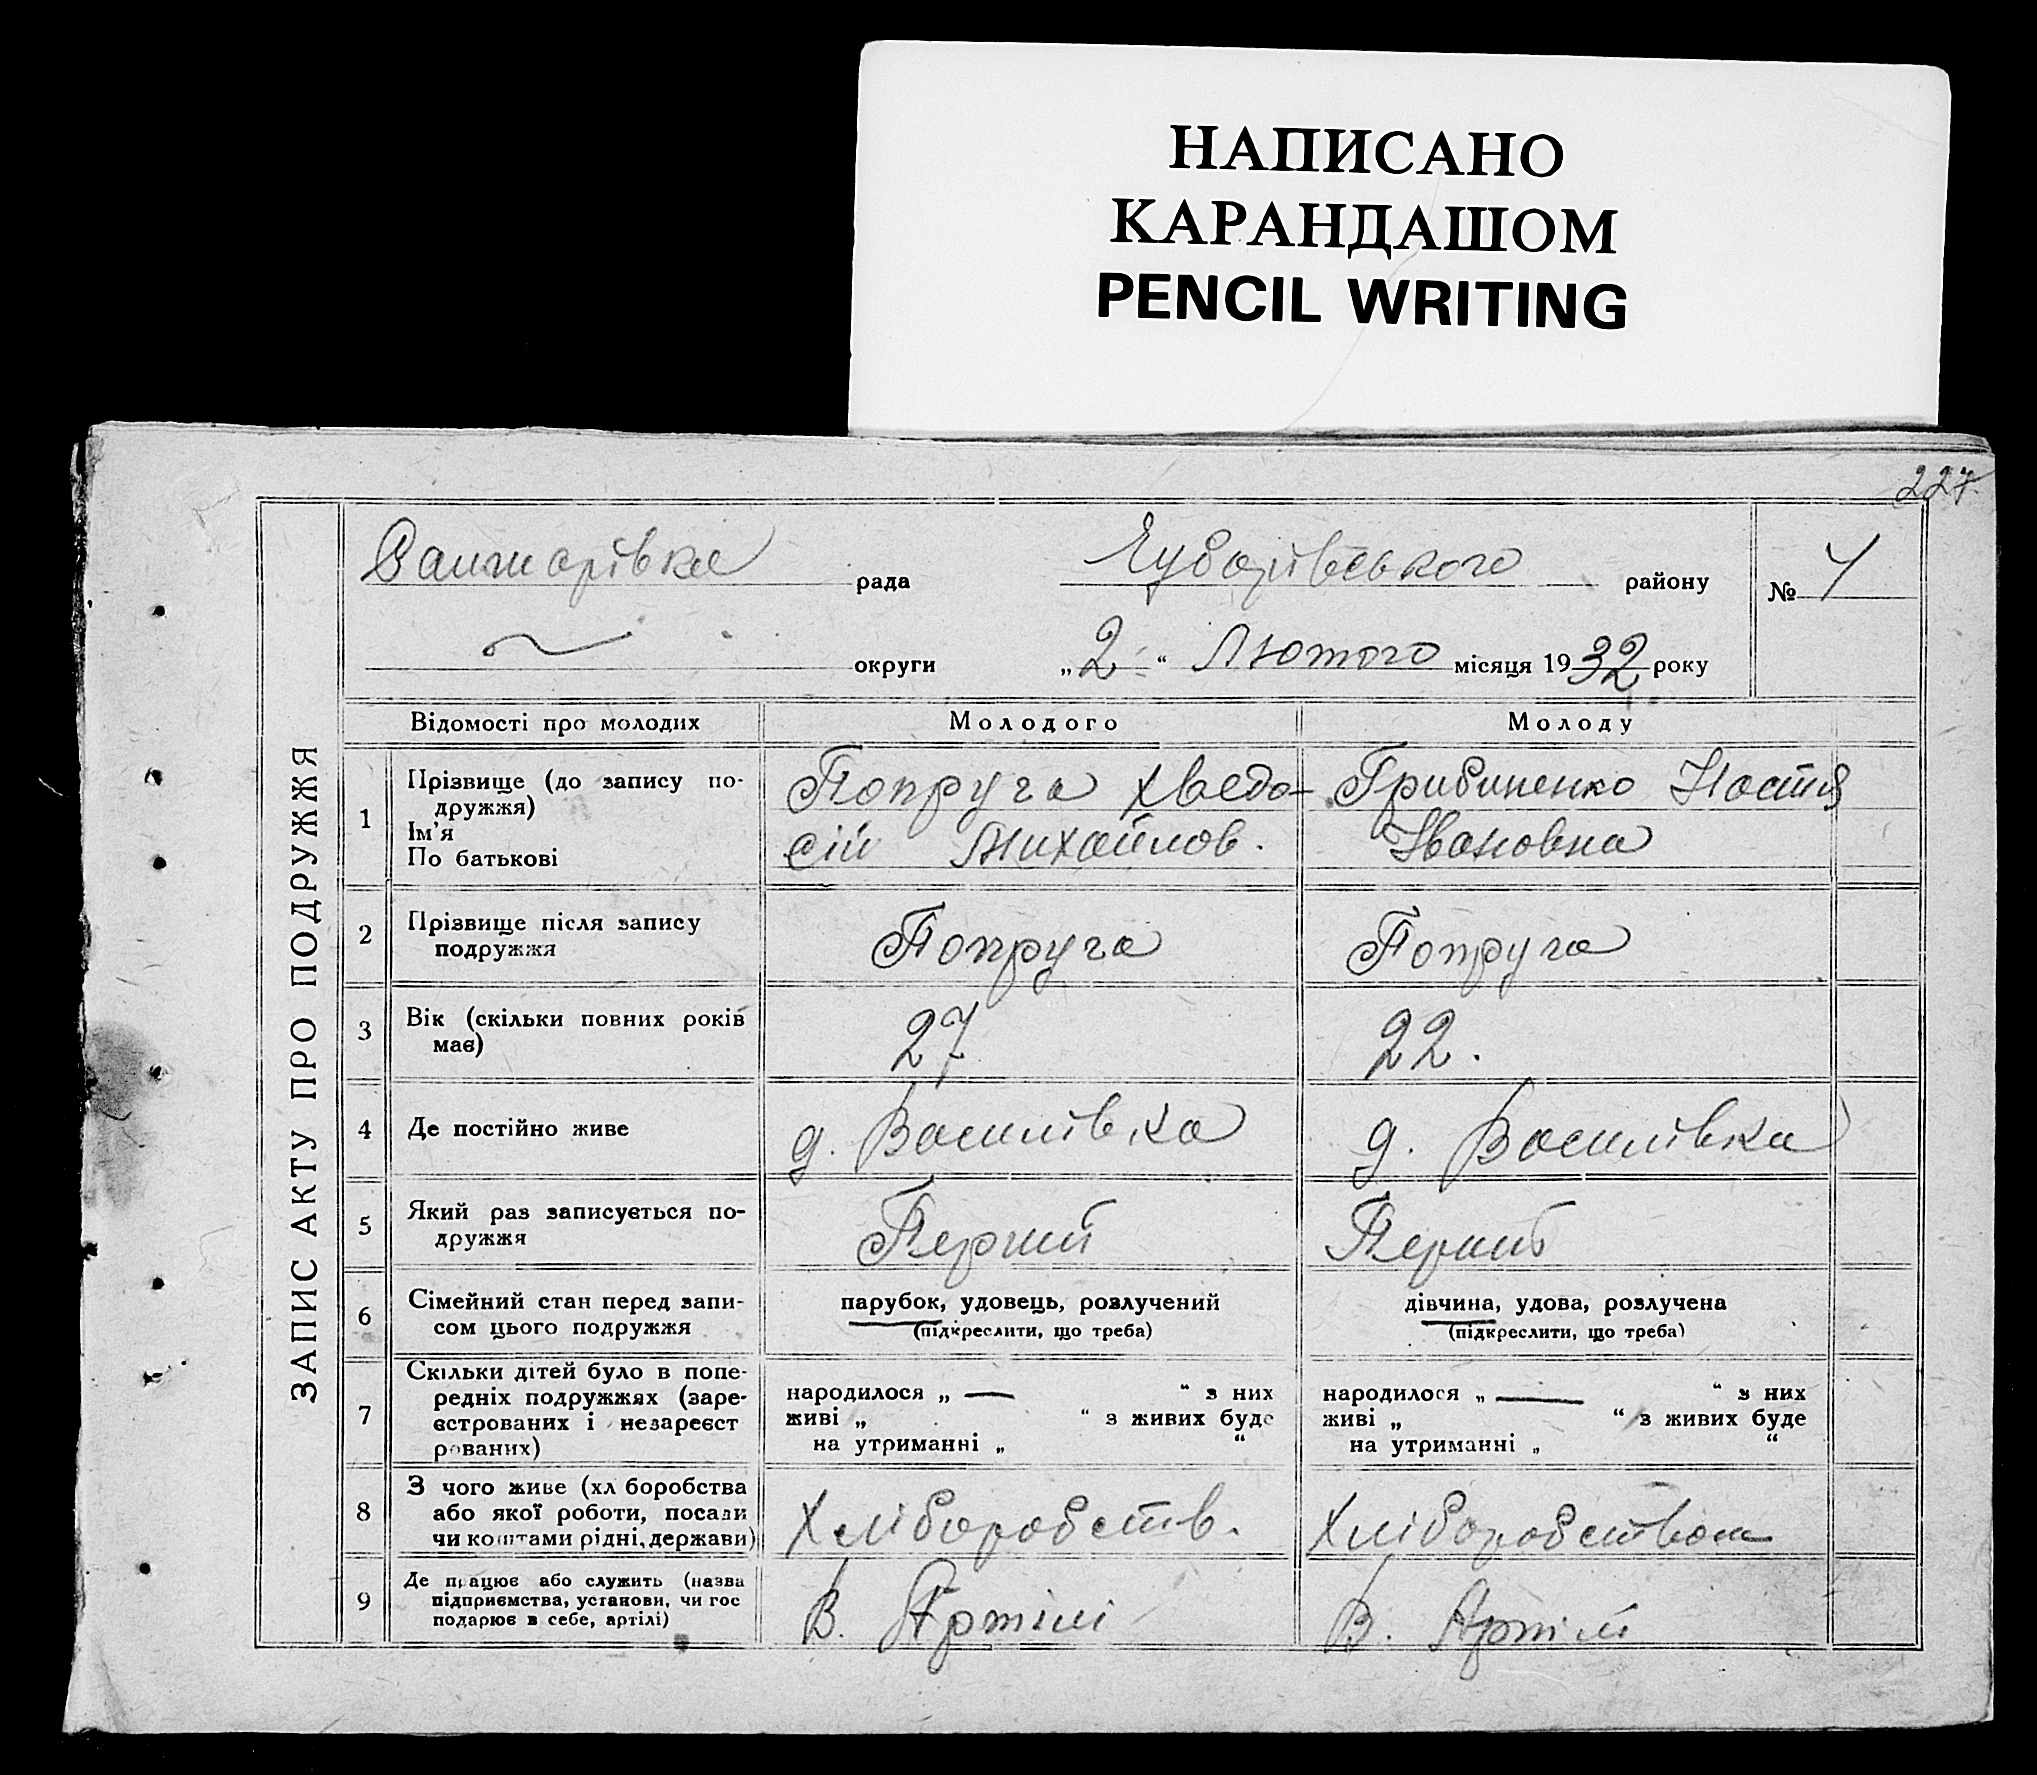 НАПИСАНО
КАРАНДАШОМ
PENCIL WRITING
227.
ЗАПИС АКТУ ПРО ПОДРУЖЖЯ
рада
Чубарівського району
№
округи
„2“ Лютого місяця 1932 року
Відомості про молодих
Молодого
Молоду
1
Прізвище (до запису по-
дружжя)
Ім'я
По батькові
Попруга Хведо-
сій Михайлов.
Грибиненко Настя
Івановна
2
Прізвище після запису
подружжя
Попруга
Попруга
3
Вік (скільки повних років
має)
27
22.
4
Де постійно живе
д. Василівка
д. Василівка
5
Який раз записується по-
дружжя
Перший
Перший
6
Сімейний стан перед запи-
сом цього подружжя
парубок, удовець, розлучений
(підкреслити, що треба)
дівчина, удова, розлучена
(підкреслити, що треба)
7
Скільки дітей було в попе-
редніх подружжях (заре-
єстрованих і незареєст
рованих)
народилося „ — “ з них
живі „ “ з живих буде
на утриманні „ “
народилося „ — “ з них
живі „ “ з живих буде
на утриманні „ “
8
З чого живе (хл боробства
або якої роботи, посади
чи коштами рідні, держави)
Хліборобств.
Хліборобством
9
Де працює або служить (назва
підприємства, установи, чи гос
подарює в себе, артілі)
В. Артілі
В. Артілі